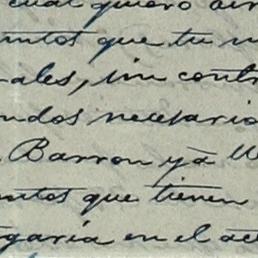 cual quiero
untos que tu
rales, sin contr
ndos necesario
Barron ya lle
untos que tienen
garia en el ac